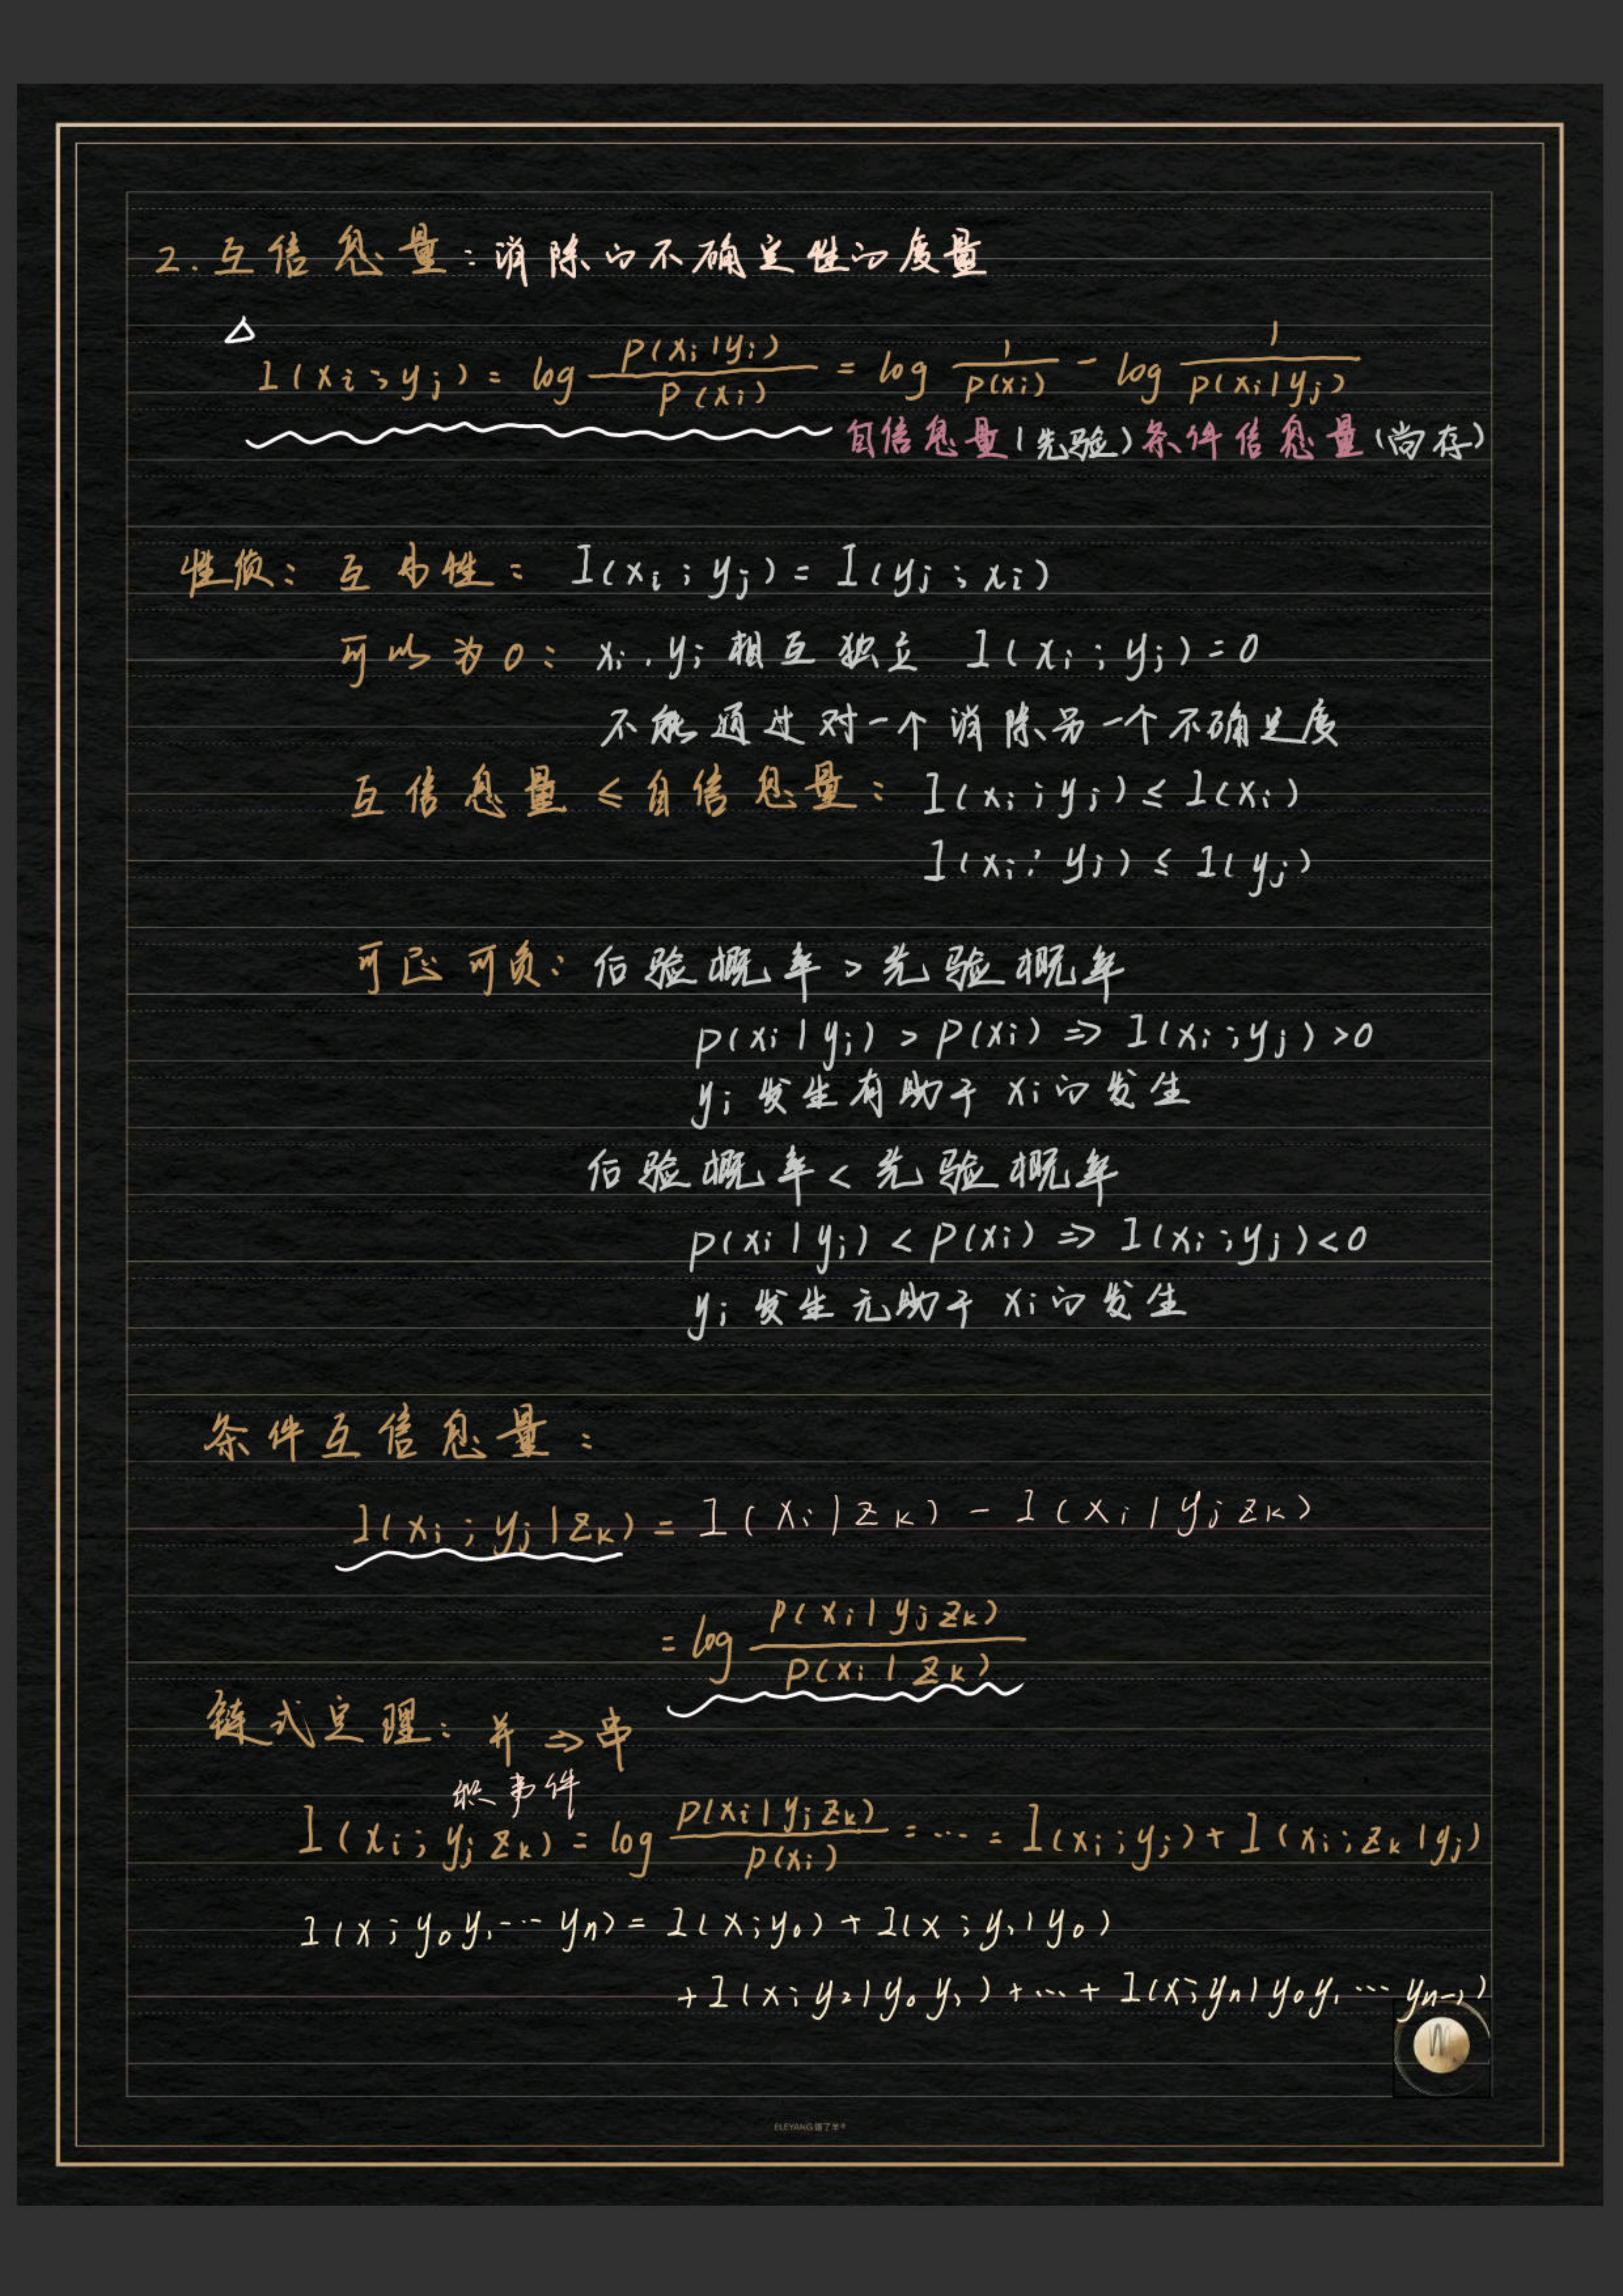 2. 互信息量：消除的不确定性的度量
△
I(xi;yj) = log p(xi|yj)/p(xi) = log 1/p(xi) - log 1/p(xi|yj)
自信息量(先验) 条件信息量(尚存)
性质：互易性：I(xi;yj) = I(yj;xi)
可以为0：xi,yj相互独立 I(xi;yj)=0
不能通过对一个消除另一个不确定度
互信息量≤自信息量：I(xi;yj) ≤ I(xi)
I(xi;yj) ≤ I(yj)
可正可负：后验概率>先验概率
p(xi|yj) > p(xi) ⇒ I(xi;yj)>0
yj发生有助于xi的发生
后验概率<先验概率
p(xi|yj) < p(xi) ⇒ I(xi;yj)<0
yj发生无助于xi的发生
条件互信息量：
I(xi;yj|zk) = I(xi|zk) - I(xi|yjzk)
= log p(xi|yjzk)/p(xi|zk)
链式定理：并⇒串
积事件
I(xi;yjzk) = log p(xi|yjzk)/p(xi) = ... = I(xi;yj) + I(xi;zk|yj)
I(x;y0y1...yn) = I(x;y0) + I(x;y1|y0)
+ I(x;y2|y0y1) + ... + I(x;yn|y0y1...yn-1)
ELEYANG饿了羊